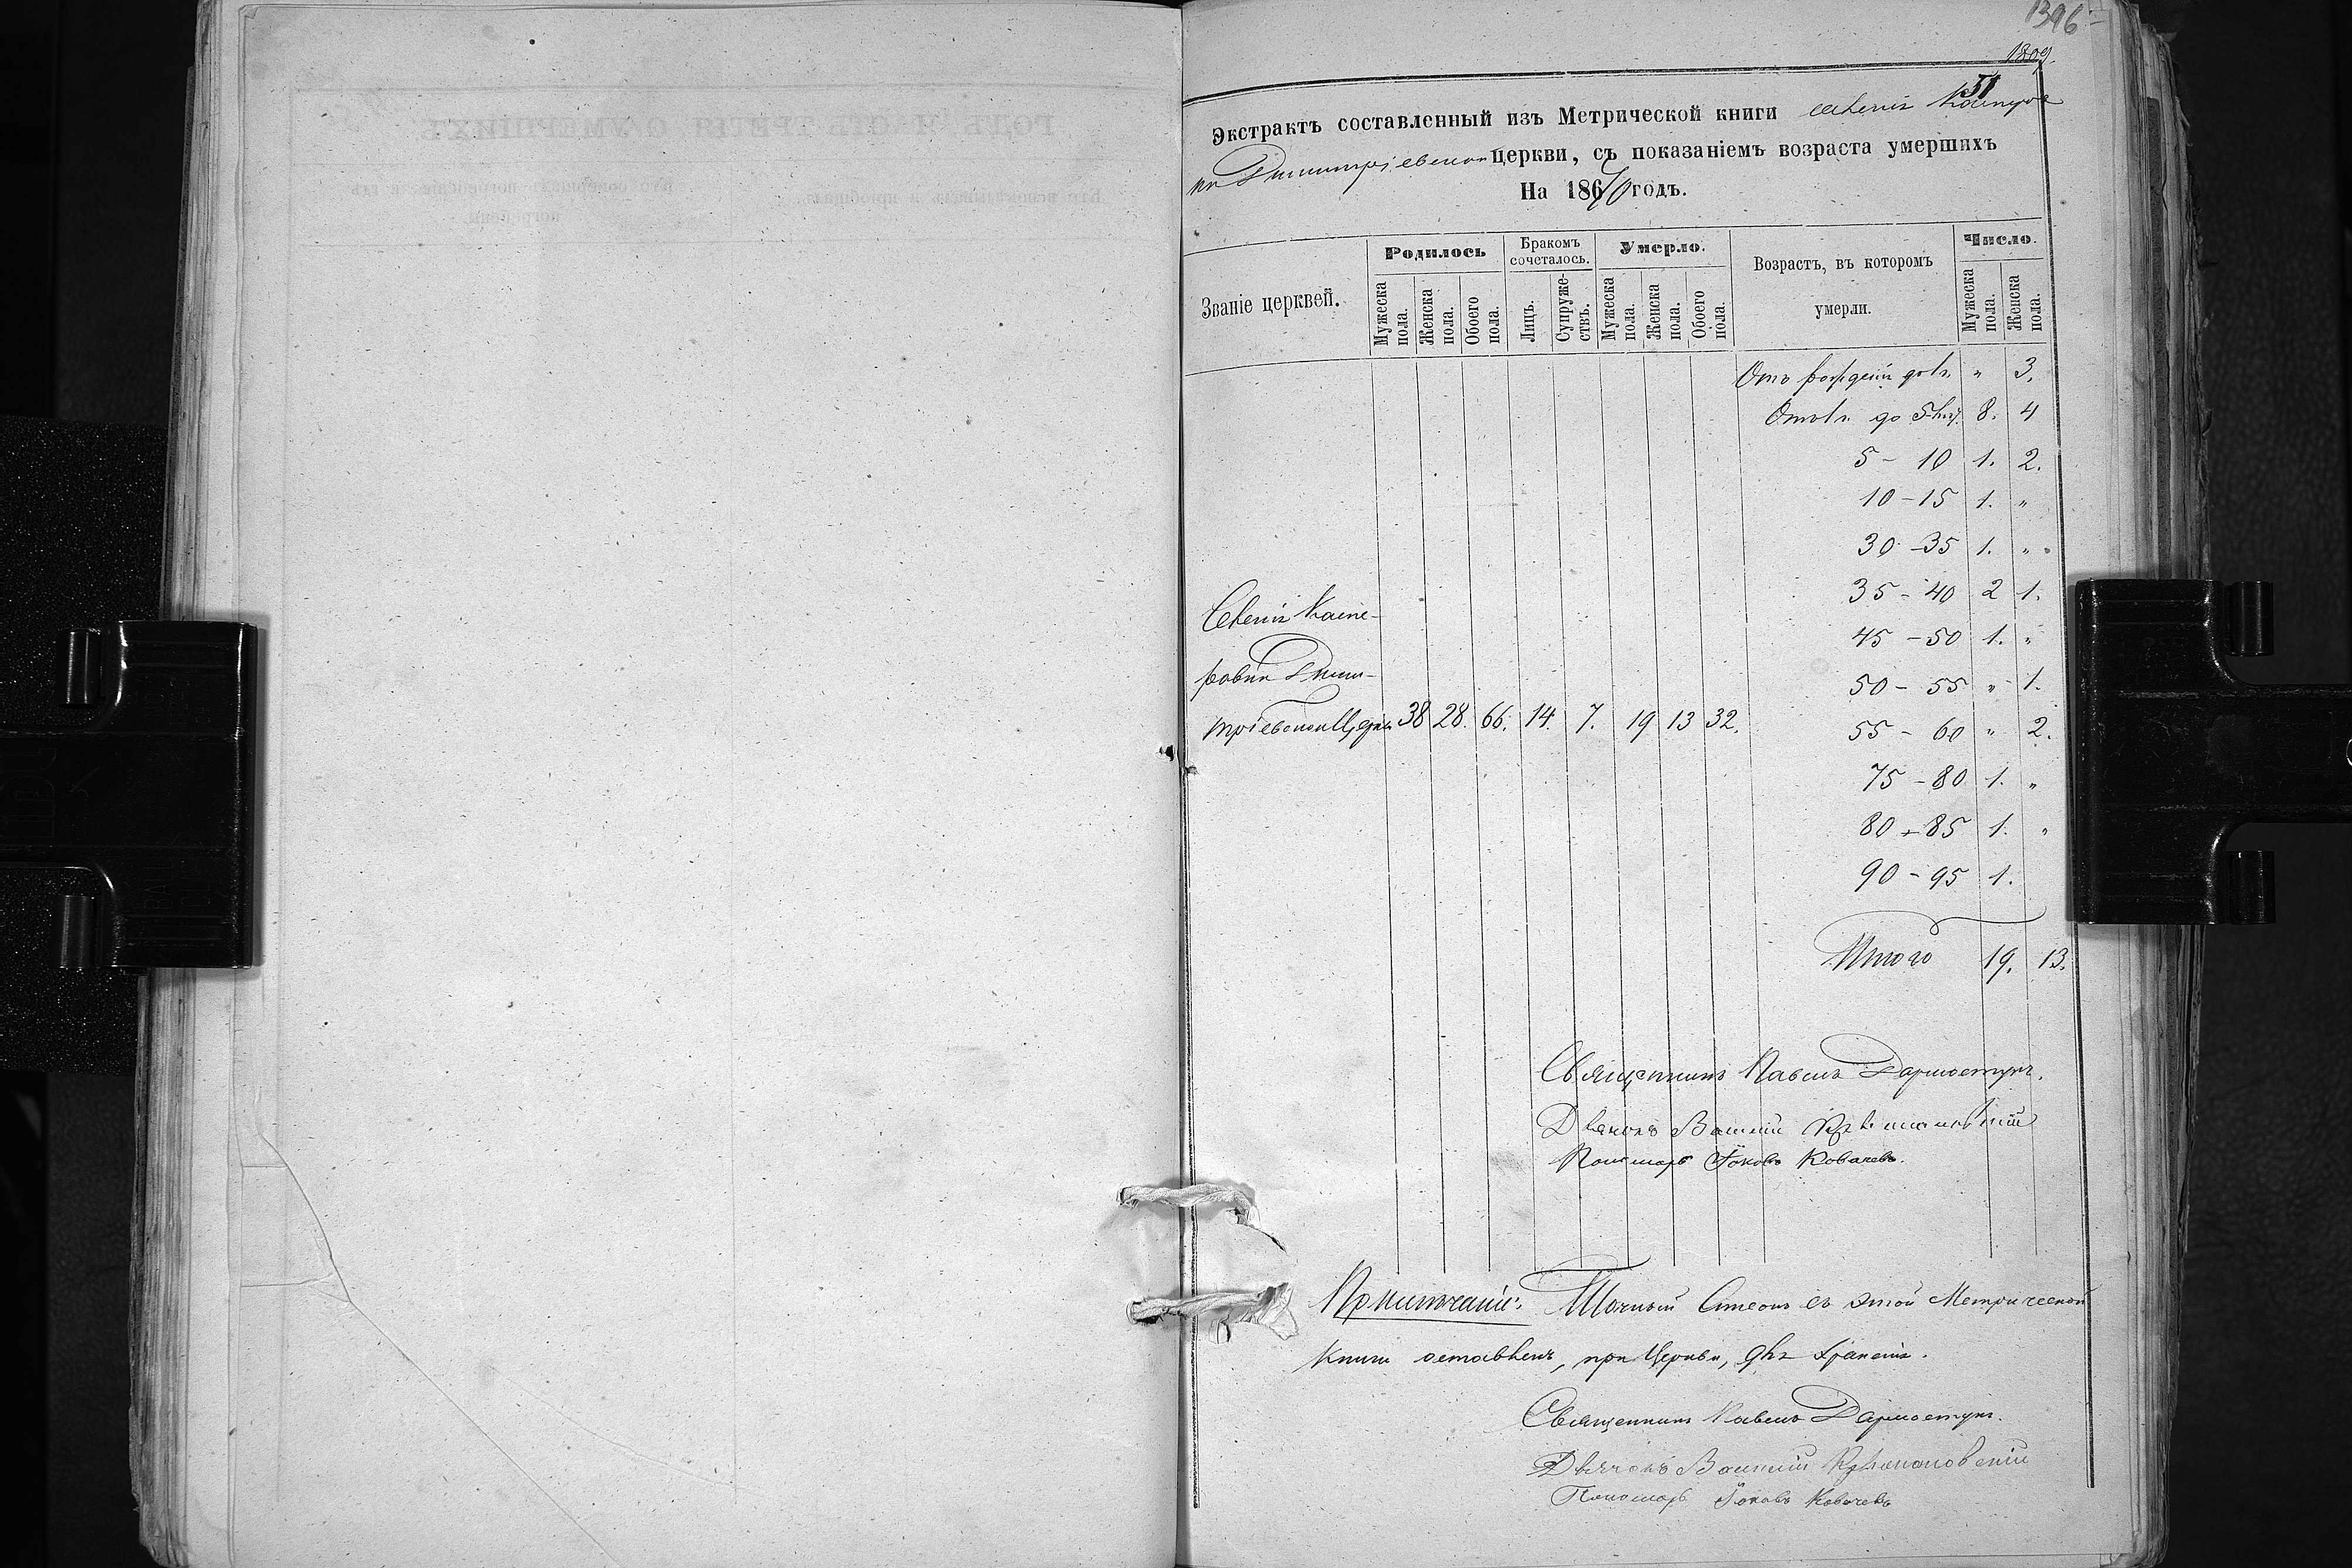 1396
1809.
51
Экстрактъ составленный изъ Метрической книги селенія
Димитріевской церкви, съ показаніемъ возраста умершихъ
На 1870 годъ.
Званіе церквей. Родилось Бракомъ сочеталось. Умерло. Возрастъ, въ которомъ умерли. Число.
Мужеска пола. Женска пола. Обоего пола. Лицъ. Супружествъ. Мужеска пола. Женска пола. Обоего пола. Мужеска пола. Женска пола.
Отъ рожденія до 1 г. " 3.
Отъ 1 г. до 5 8. 4
5 - 10 1. 2.
10 - 15 1. "
30 - 35 1. "
35 - 40 2 1.
45 - 50 1. "
50 - 55 " 1.
55 - 60 " 2.
75 - 80 1. "
80 - 85 1. "
90 - 95 1.
Селенія
Дими-
тріевской Церкви 38 28. 66. 14. 7. 19 13 32.
Итого 19. 13.
Священникъ Павелъ
Дьячокъ Василій
Пономарь Іаковъ Ковачевъ.
Примѣчаніе: Точный списокъ съ этой Метрической
книги оставленъ, при Церкви, для храненія.
Священникъ Павелъ
Дьячокъ Василій
Пономарь Іаковъ Ковачевъ